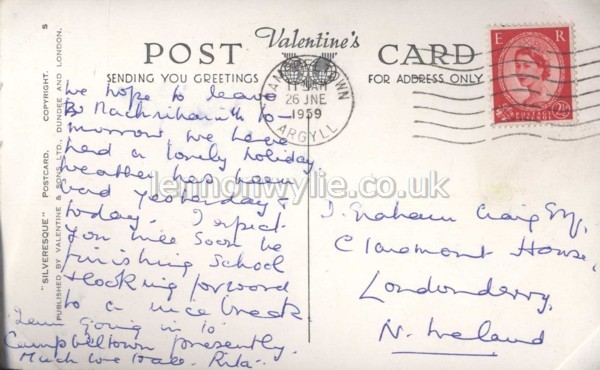 POST Valentine's CARD
SENDING YOU GREETINGS
FOR ADDRESS ONLY
"SILVERESQUE" POSTCARD. COPYRIGHT. S
PUBLISHED BY VALENTINE & SONS LTD., DUNDEE AND LONDON.
11 AM
26 JNE
1959
ARGYLL
E R
We hope to leave
to-
morrow we have
had a lovely holiday.
weather has been
yesterday &
today. I expect
you will soon be
finishing school
& looking forward
to a nice break
going in to
Campbeltown presently.
Much love Rita.
J. Graham Craig Esq.,
Claremont House,
Londonderry,
N. Ireland
lennonwylie.co.uk